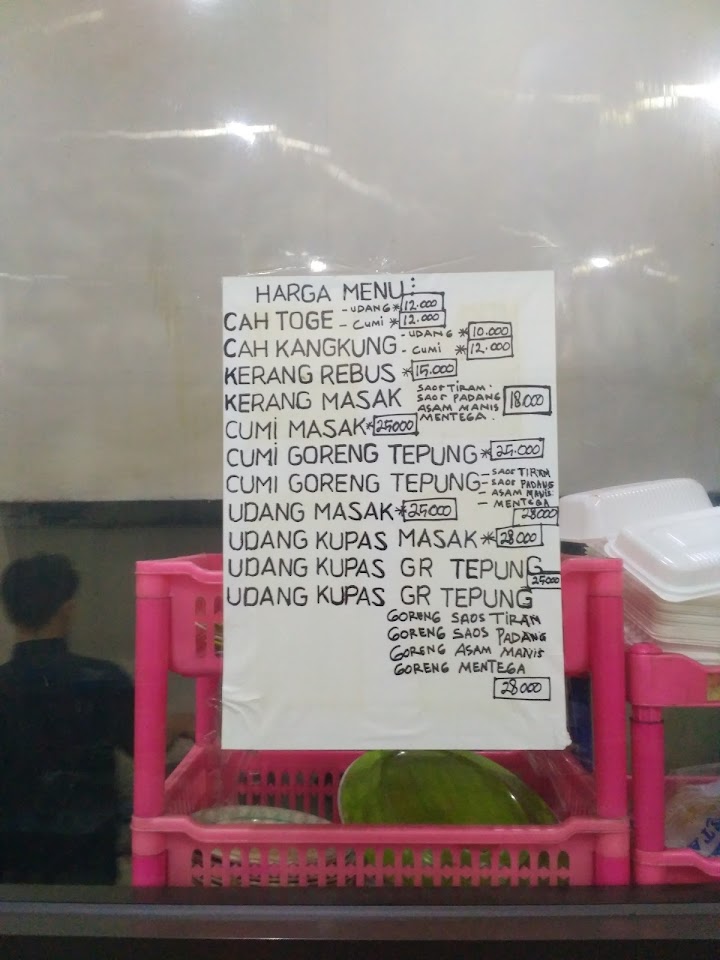 HARGA MENU:
CAH TOGE - UDANG * 12.000
- CUMI * 12.000
CAH KANGKUNG - UDANG * 10.000
- CUMI * 12.000
KERANG REBUS * 15.000
KERANG MASAK SAOS TIRAM. 18.000
SAOS PADANG
ASAM MANIS
MENTEGA.
CUMI MASAK * 25000
CUMI GORENG TEPUNG * 25.000
CUMI GORENG TEPUNG - SAOS TIRAM
- SAOS PADANG
- ASAM MANIS
- MENTEGA
28000
UDANG MASAK * 25000
UDANG KUPAS MASAK * 28000
UDANG KUPAS GR TEPUNG 25000
UDANG KUPAS GR TEPUNG
GORENG SAOS TIRAM
GORENG SAOS PADANG
GORENG ASAM MANIS
GORENG MENTEGA
28000